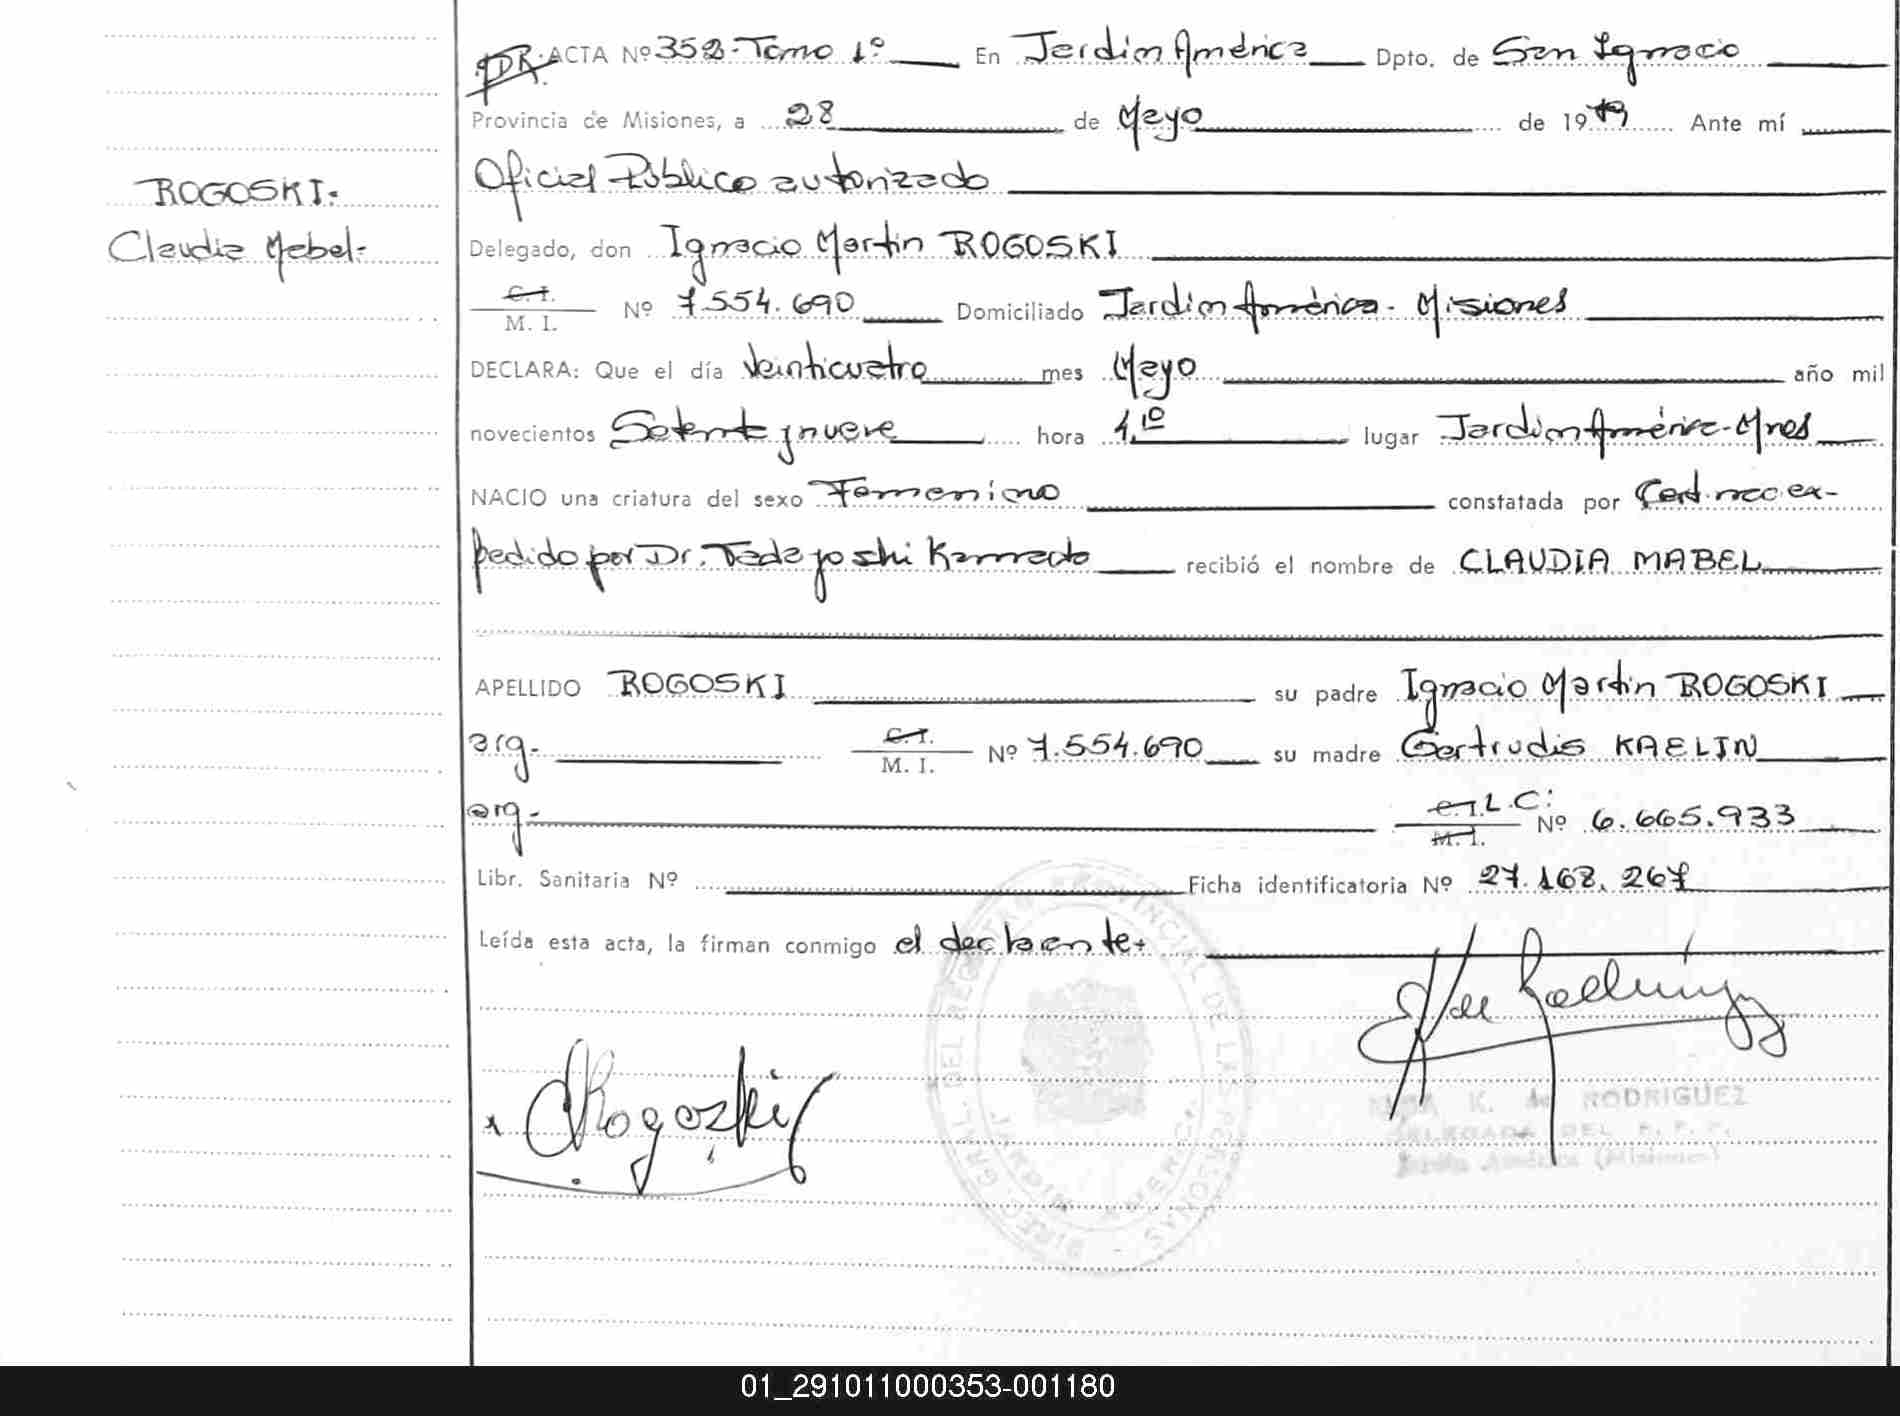 ROGOSKI.
Claudia Mabel-
DR. ACTA Nº 352- Tomo 1º En Jardín América Dpto. de San Ignacio
Provincia de Misiones, a 28 de Mayo de 1979 Ante mí
Oficial Público autorizado
Delegado, don Ignacio Martin ROGOSKI
C. I.
M. I. Nº 7.554.690 Domiciliado Jardín América- Misiones
DECLARA: Que el día Veinticuatro mes Mayo año mil
novecientos Setenta y nueve hora 1,10 lugar Jardín América- Mnes
NACIO una criatura del sexo Femenino constatada por Cert. nac. ex-
pedido por Dr. Tadayoshi Kamada recibió el nombre de CLAUDIA MABEL
APELLIDO ROGOSKI su padre Ignacio Martin ROGOSKI
arg- C. I.
M. I. Nº 7.554.690 su madre Gertrudis KAELIN
arg- C. I. L.C:
M. I. Nº 6.665.933
Libr. Sanitaria Nº Ficha identificatoria Nº 27.168.267
Leída esta acta, la firman conmigo el declarante.
Rogoski
K. de RODRIGUEZ
DELEGADA DEL R. P. P.
Jardín América (Misiones)
DIREC. GRAL. DEL REGISTRO PROVINCIAL DE LAS PERSONAS
JARDIN AMERICA
01_291011000353-001180